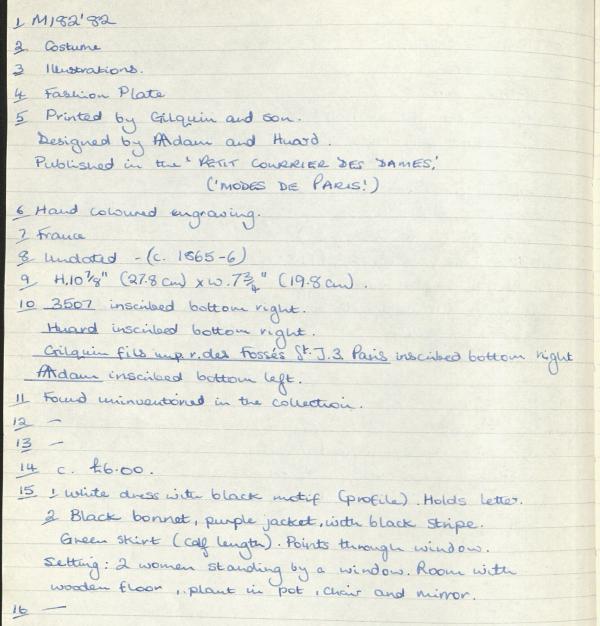 1 M182'82
2 Costume
3 Illustrations.
4 Fashion Plate
5 Printed by Gilquin and son.
Designed by AAdam and Huard.
Published in the 'PETIT COURRIER DES DAMES.'
('MODES DE PARIS.')
6 Hand coloured engraving.
7 France
8 Undated - (c. 1865-6)
9 H.10 7/8" (27.8 cm) x W. 7 3/4" (19.8 cm).
10 3507 inscribed bottom right.
Huard inscribed bottom right.
Gilquin fils imp r. des Fossés St. J. 3 Paris inscribed bottom right
AAdam inscribed bottom left.
11 Found uninventioned in the collection.
12 —
13 —
14 c. £6.00.
15 1 White dress with black motif (profile). Holds letter.
2 Black bonnet, purple jacket, with black stripe.
Green skirt (calf length). Points through window.
Setting: 2 women standing by a window. Room with
wooden floor, plant in pot, chair and mirror.
16 —